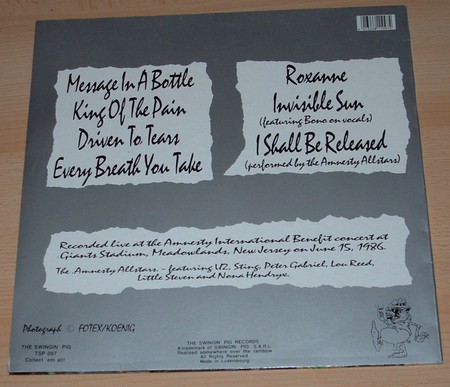 Message In A Bottle
King Of The Pain
Driven To Tears
Every Breath You Take
Roxanne
Invisible Sun
(featuring Bono on vocals)
I Shall Be Released
(performed by the Amnesty Allstars)
Recorded live at the Amnesty International Benefit concert at
Giants Stadium, Meadowlands, New Jersey on June 15, 1986.
The Amnesty Allstars - featuring U2, Sting, Peter Gabriel, Lou Reed,
Little Steven and Nona Hendryx.
Photograph © FOTEX/KOENIG
THE SWINGIN' PIG
TSP 057
Collect 'em all!
THE SWINGIN' PIG RECORDS
A trademark of SWINGIN' PIG S.A.R.L.
Realized somewhere over the rainbow
All Rights Reserved.
Made in Luxembourg